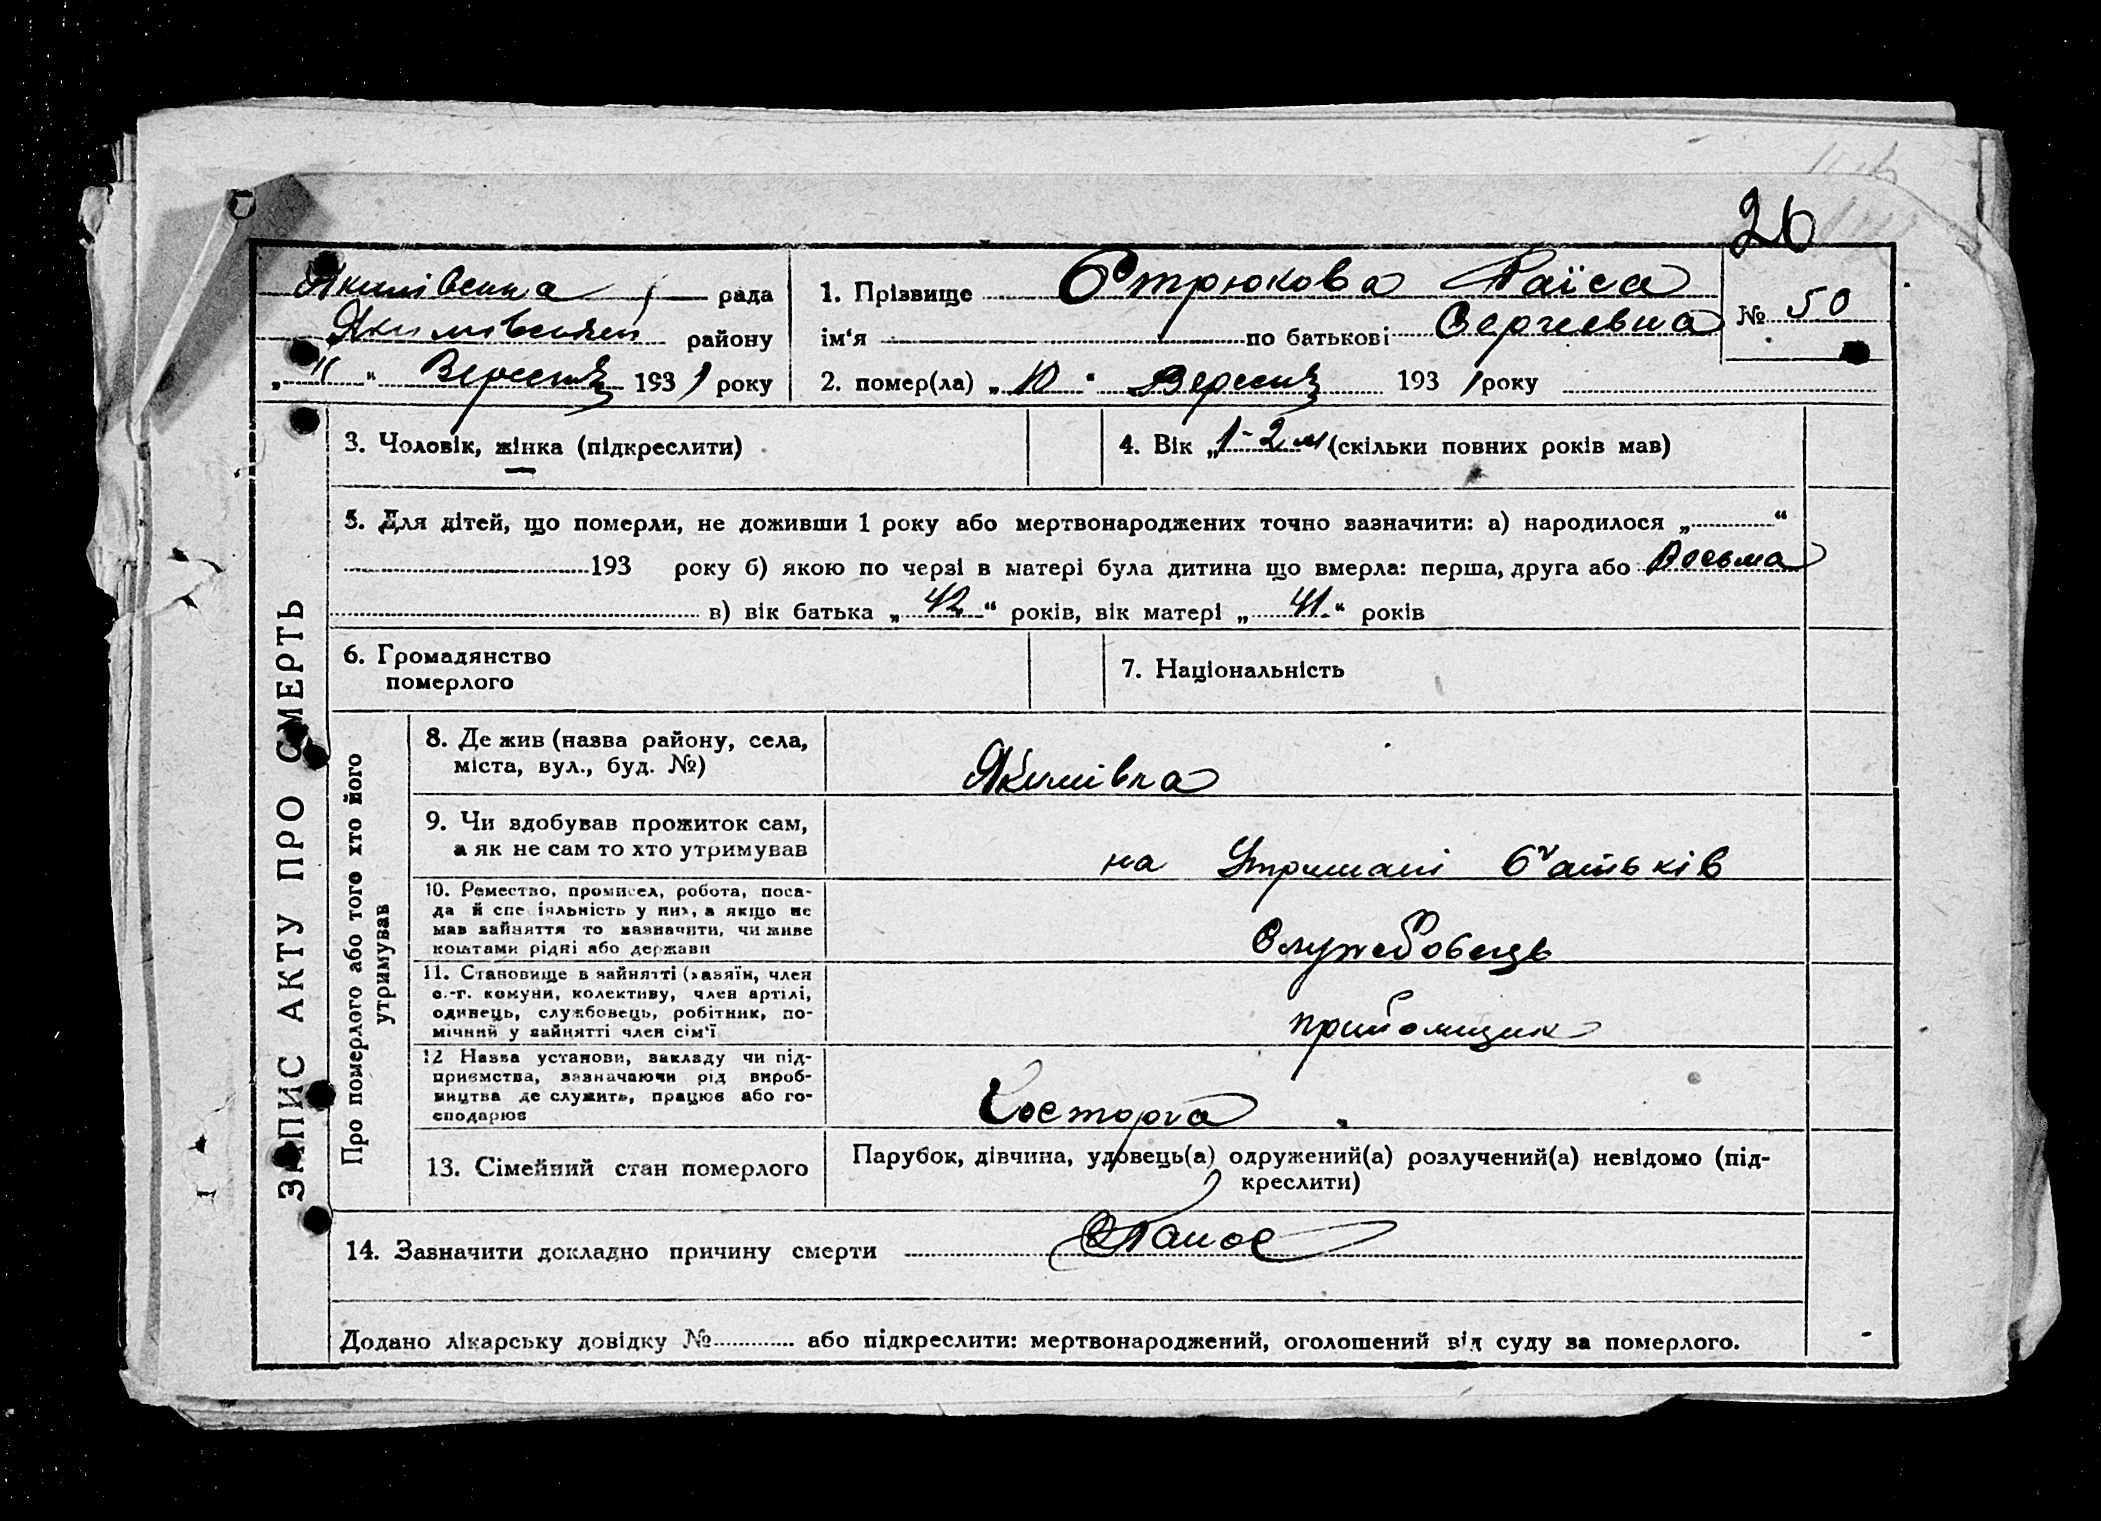 26
Якимівська рада
Якимівський району
„11“ Вересня 1931 року
1. Прізвище Стрюкова Раїса
ім‘я по батькові Сергіевна
2. помер(ла) „10“ Вересня 1931 року
№ 50
ЗАПИС АКТУ ПРО СМЕРТЬ
3. Чоловік, жінка (підкреслити)
4. Вік „1-2 м (скільки повних років мав)
5. Для дітей, що померли, не доживши 1 року або мертвонароджених точно зазначити: а) народилося „ “
193 року б) якою по черзі в матері була дитина що вмерла: перша, друга або Восьма
в) вік батька „42“ років, вік матері „41“ років
6. Громадянство
померлого
7. Національність
Про померлого або того хто його
утримував
8. Де жив (назва району, села,
міста, вул., буд. №)
Якимівка
9. Чи здобував прожиток сам,
а як не сам то хто утримував
на Утримані батьків
10. Ремество, промисел, робота, поса-
да й спеціяльність у них, а якщо не
мав зайняття то зазначити, чи живе
коштами рідні або держави
Службовець
11. Становище в зайнятті (хазяїн, член
с.-г. комуни, колективу, член артілі,
одинець, службовець, робітник, по-
мічний у зайнятті член сім‘ї
прийомщик
12 Назва установи, закладу чи під-
приємства, зазначаючи рід вироб-
ництва де служить, працює або го-
сподарює
Госторга
13. Сімейний стан померлого
Парубок, дівчина, удовець(а) одружений(а) розлучений(а) невідомо (під-
креслити)
14. Зазначити докладно причину смерти
Додано лікарську довідку № або підкреслити: мертвонароджений, оголошений від суду за померлого.